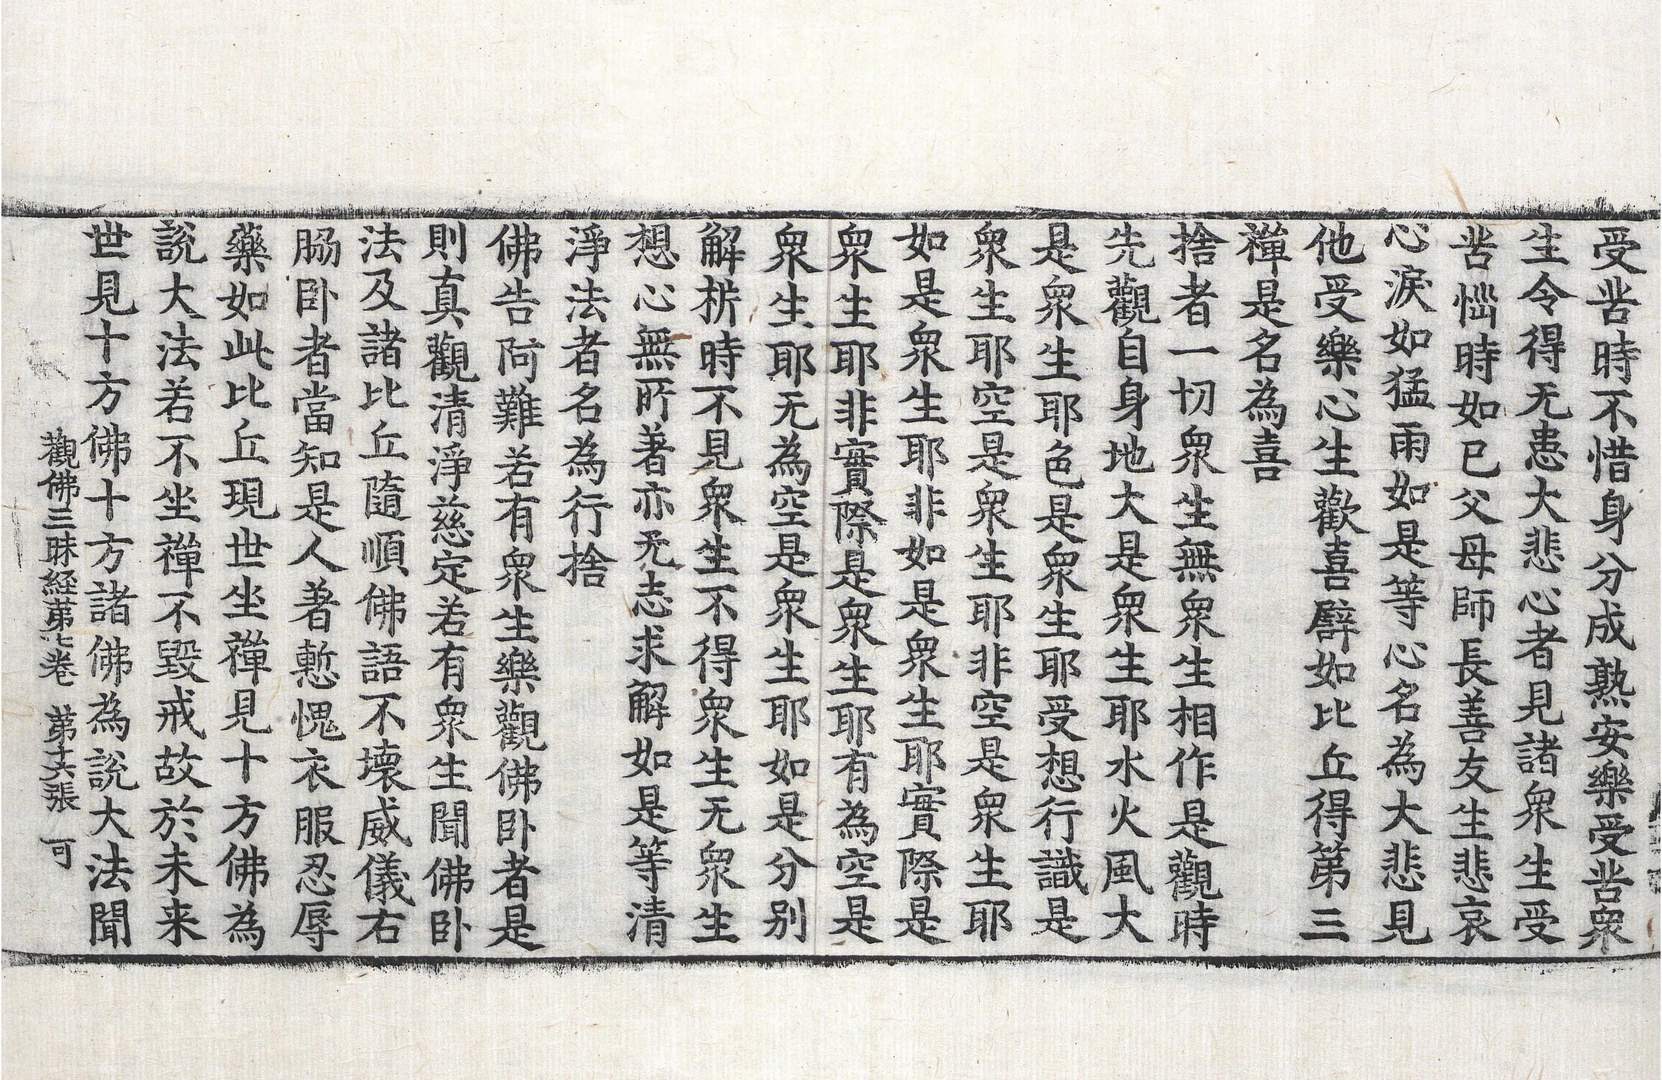 受苦時不惜身分成熟安樂受苦衆
生令得无患大悲心者見諸衆生受
苦惱時如已父母師長善友生悲哀
心淚如猛雨如是等心名為大悲見
他受樂心生歡喜譬如比丘得第三
禪是名為喜
捨者一切衆生無衆生相作是觀時
先觀自身地大是衆生耶水火風大
是衆生耶色是衆生耶受想行識是
衆生耶空是衆生耶非空是衆生耶
如是衆生耶非如是衆生耶實際是
衆生耶非實際是衆生耶有為空是
衆生耶无為空是衆生耶如是分别
解析時不見衆生不得衆生无衆生
想心無所著亦无志求解如是等清
淨法者名為行捨
佛告阿難若有衆生樂觀佛卧者是
則真觀清淨慈定若有衆生聞佛卧
法及諸比丘隨順佛語不壞威儀右
脇卧者當知是人著慙愧衣服忍辱
藥如此比丘現世坐禪見十方佛為
說大法若不坐禪不毀戒故於未来
世見十方佛十方諸佛為說大法聞
觀佛三昧経苐七卷　苐十六張　可